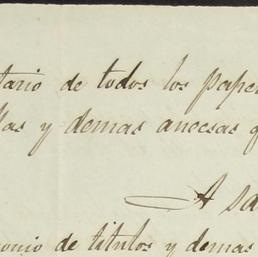 tario de todos los pape
llas y demas anecsas q
A sa
onio de titulos y demas